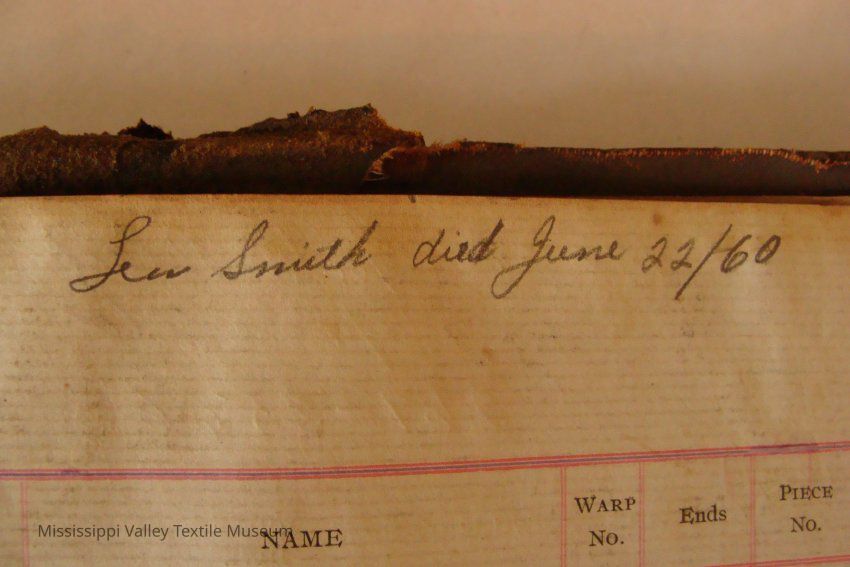 Smith died June 22/60
NAME
WARP No.
Ends
PIECE No.
Mississippi Valley Textile Museum